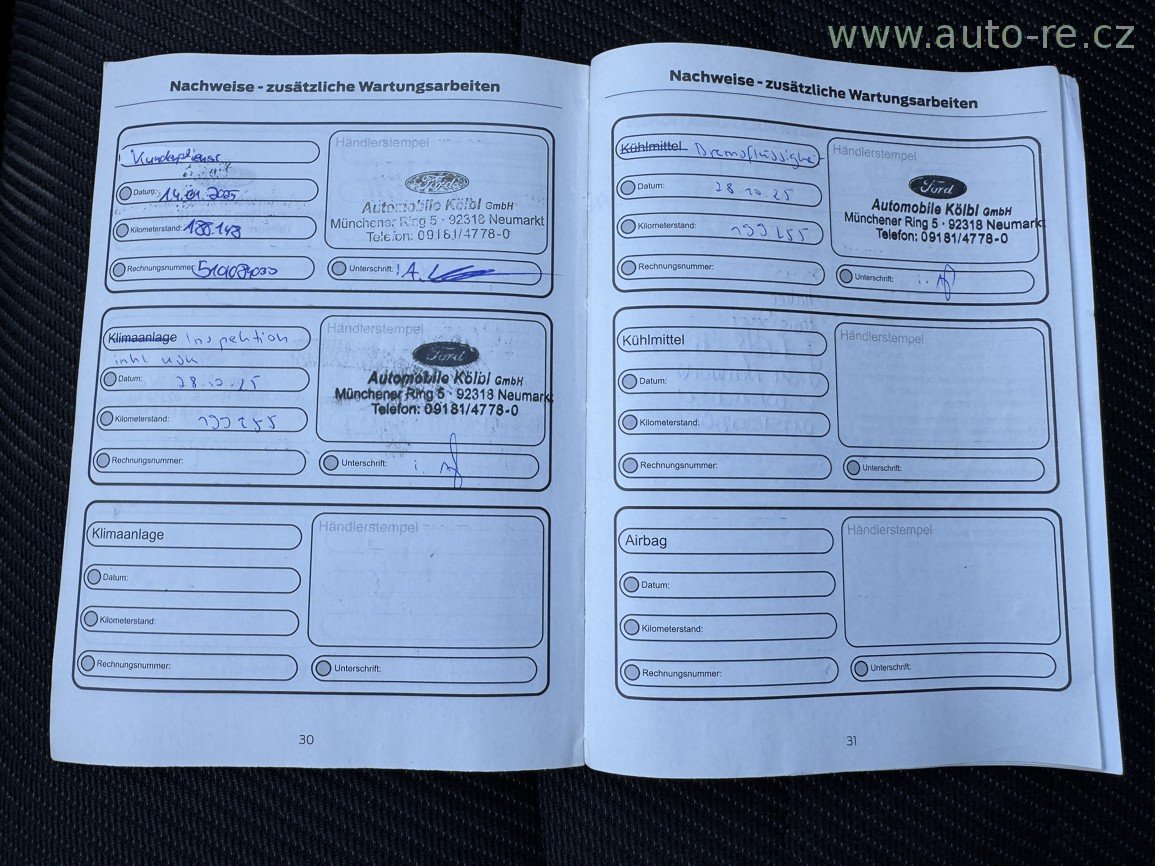 www.auto-re.cz
Nachweise - zusätzliche Wartungsarbeiten
Kundendienst
Datum: 14.01.2025
Kilometerstand:
Rechnungsnummer:
Händlerstempel
Ford
Automobile Kölbl GmbH
Münchener Ring 5 · 92318 Neumarkt
Telefon: 09181/4778-0
Unterschrift:
Klimaanlage Inspektion
inkl.
Datum: 28.10.25
Kilometerstand:
Rechnungsnummer:
Händlerstempel
Ford
Automobile Kölbl GmbH
Münchener Ring 5 · 92318 Neumark
Telefon: 09181/4778-0
Unterschrift: i. A
Klimaanlage
Datum:
Kilometerstand:
Rechnungsnummer:
Händlerstempel
Unterschrift:
30
Nachweise - zusätzliche Wartungsarbeiten
Kühlmittel Bremsflüssigkeit
Datum: 28.10.25
Kilometerstand:
Rechnungsnummer:
Händlerstempel
Ford
Automobile Kölbl GmbH
Münchener Ring 5 · 92318 Neumarkt
Telefon: 09181/4778-0
Unterschrift: i. A
Kühlmittel
Datum:
Kilometerstand:
Rechnungsnummer:
Händlerstempel
Unterschrift:
Airbag
Datum:
Kilometerstand:
Rechnungsnummer:
Händlerstempel
Unterschrift:
31